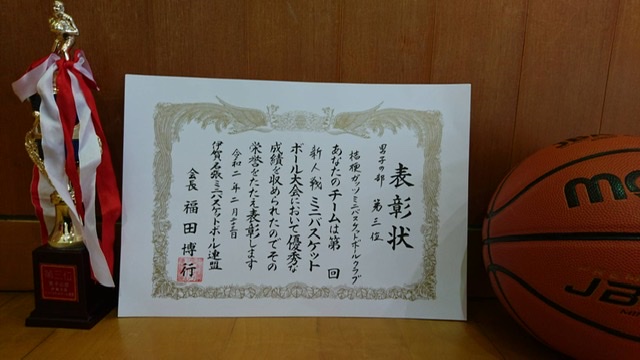 表彰状
男子の部 第三位
桔梗ガッツミニバスケットボールクラブ
あなたのチームは第 回
新人戦ミニバスケット
ボール大会において優秀な
成績を収められたのでその
栄誉をたたえ表彰します
令和二年二月
伊賀名張ミニバスケットボール連盟
会長 福田博行
第三位
mo
JA